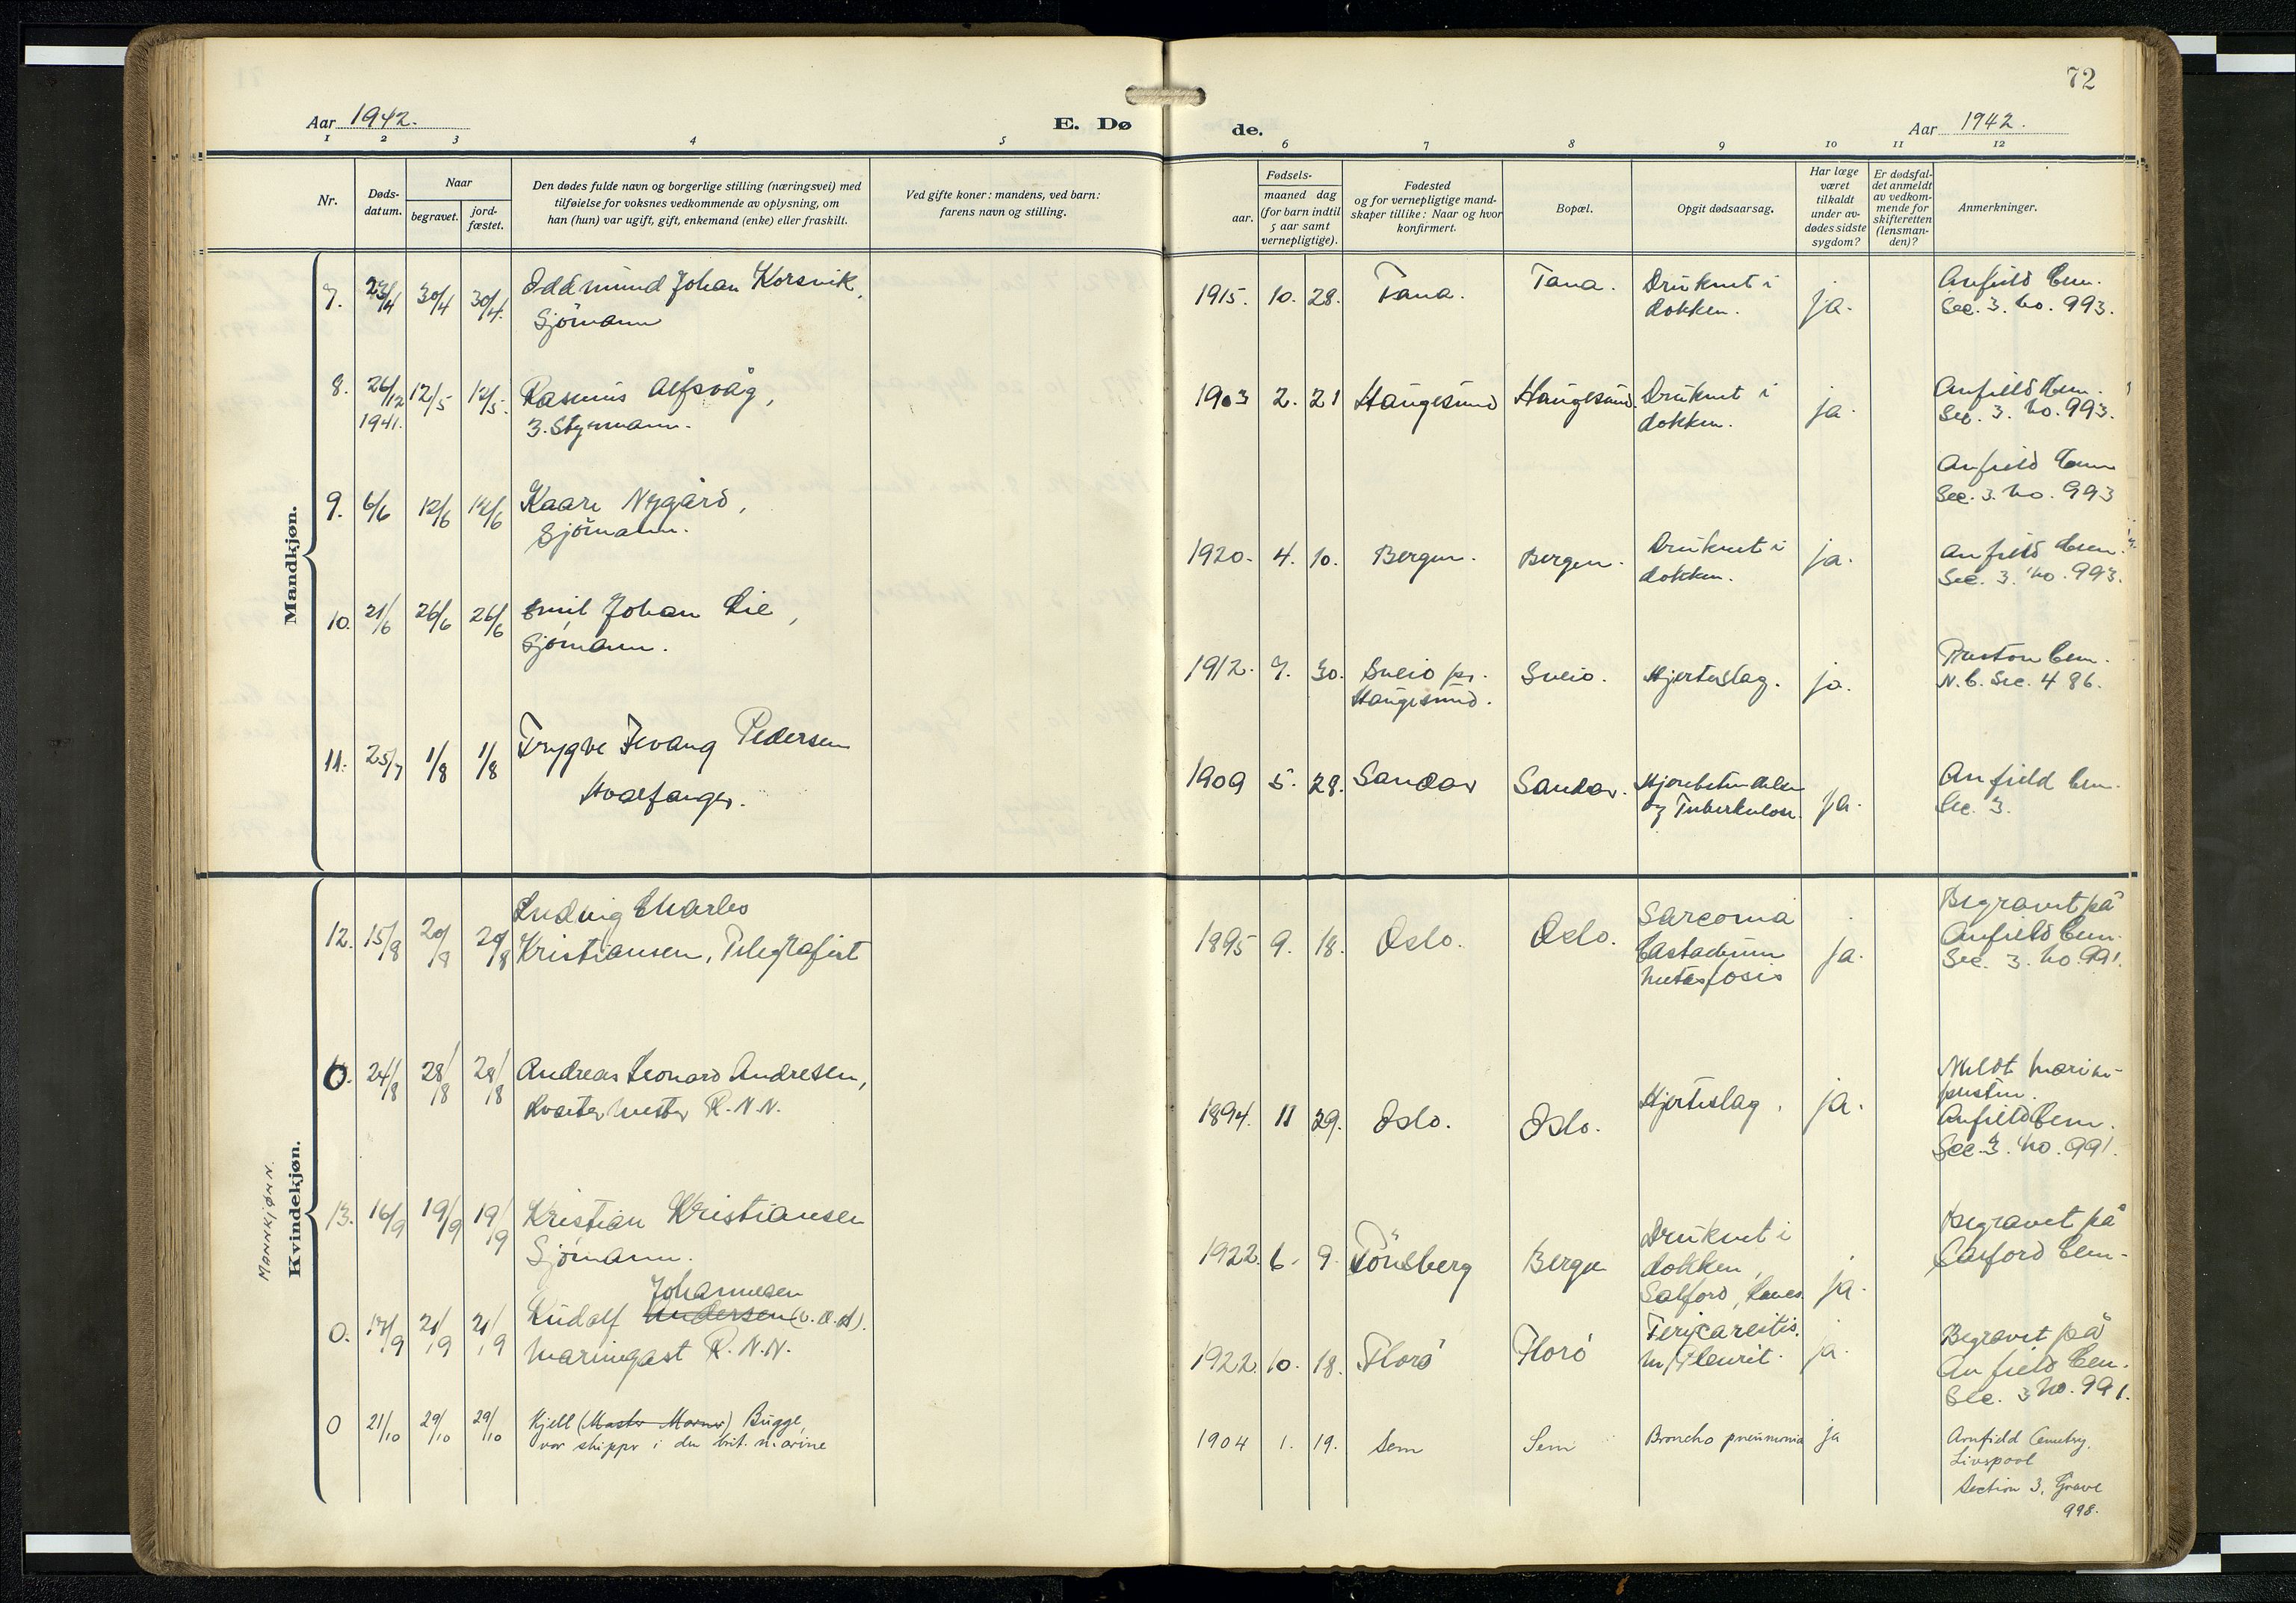 72
Aar 1942.
E. Døde.
Aar 1942.
1 2 3 4 5 6 7 8 9 10 11 12
Nr.
Døds-
datum.
Naar
begravet.
jord-
fæstet.
Den dødes fulde navn og borgerlige stilling (næringsvei) med
tilføielse for voksnes vedkommende av oplysning, om
han (hun) var ugift, gift, enkemand (enke) eller fraskilt.
Ved gifte koner: mandens, ved barn:
farens navn og stilling.
Fødsels-
aar.
maaned dag
(for barn indtil
5 aar samt
vernepligtige).
Fødested
og for vernepligtige mand-
skaper tillike: Naar og hvor
konfirmert.
Bopæl.
Opgit dødsaarsag.
Har læge
været
tilkaldt
under av-
dødes sidste
sygdom?
Er dødsfal-
det anmeldt
av vedkom-
mende for
skifteretten
(lensman-
den)?
Anmerkninger.
Mandkjøn.
7. 23/4 30/4 30/4. Oddmund Johan Korsvik,
Sjömann
1915. 10. 28. Tana. Tana. Druknet i
dokken. ja. Anfield Cem.
Sec. 3. No. 993.
8. 26/12
1941. 12/5 12/5. Rasmus Alfsvåg,
3. Styrmann.
1903 2. 21 Haugesund Haugesund. Druknet i
dokken. ja. Anfield Cem.
Sec. 3. No. 993.
9. 6/6 12/6 12/6 Kaare Nygård,
Sjömann.
Anfield Cem
Sec. 3. No. 993
1920. 4. 10. Bergen. Bergen. Druknet i
dokken. ja. Anfield Cem.
Sec. 3. No. 993.
10. 21/6 26/6 26/6 Emil Johan Lie,
Sjömann.
1912. 7. 30. Sveio pr.
Haugesund. Sveio. Hjerteslag. ja. Preston Cem.
N.C. Sec. 4 86.
11. 25/7 1/8 1/8 Trygve Jevang Pedersen
Hvalfanger.
1909 5. 28. Sandar Sandar.
og Tuberkulose. ja. Anfield Cem.
Sec. 3.
MANNKJØNN.
Kvindekjøn.
12. 15/8 20/8 20/8 Ludvig Charles
Kristiansen, Telegrafist
1895 9. 18. Oslo. Oslo. Sarcoma
ja. Begravet på
Anfield Cem.
Sec. 3. No. 991.
0. 24/8 28/8 28/8 Andreas Leonard Andresen,
Kvartermester R.N.N.
1894. 11 29. Oslo. Oslo. Hjerteslag. ja. Meldt Marine-
presten.
Anfield Cem.
Sec. 3. No. 991.
13. 16/9 19/9 19/9 Kristian Kristiansen
Sjömann.
1922. 6. 9. Tönsberg Bergen Druknet i
dokken,
Salford, Lancs. ja. Begravet på
Salford Cem.
0. 17/9 21/9 21/9 Rudolf Andersen Johannesen
Marinegast R.N.N.
1922. 10. 18. Florö Florö Pericareitis.
m/Pleurit. ja. Begravet på
Anfield Cem.
Sec. 3 No. 991.
0 21/10 29/10 29/10 Kjell Bugge,
var skipper i den brit. marine
1904 1. 19. Sem Sem Broncho pneumonia ja Anfield Cemetery,
Liverpool
Section 3, Grave
998.